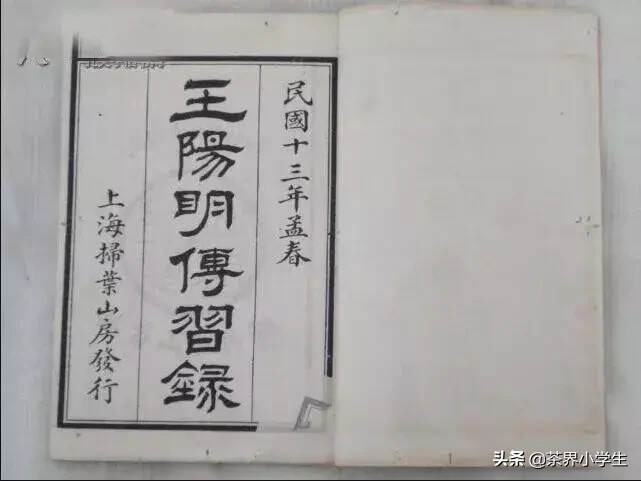 民國十三年孟春
王陽明傳習録
上海掃葉山房發行
头条 @茶界小学生